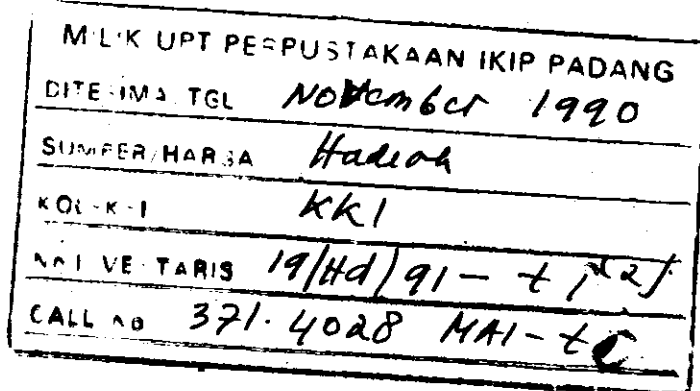 MILIK UPT PERPUSTAKAAN IKIP PADANG
DITERIMA TGL November 1990
SUMBER/HARGA Hadiah
KOLEKSI KKI
No INVENTARIS 19/Hd/91 - t
CALL No 371.4028 MAI-t